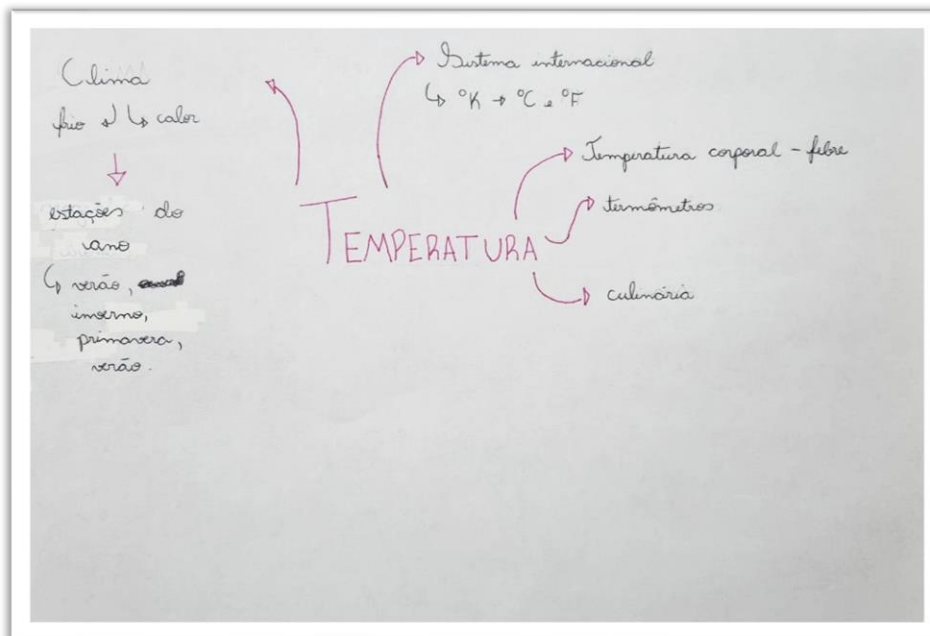 Clima
frio ↲ ↳ calor
estações do
ano
↳ verão,
inverno,
primavera,
verão.
Sistema internacional
↳ °K → °C e °F
TEMPERATURA
Temperatura corporal - febre
termômetros
culinária